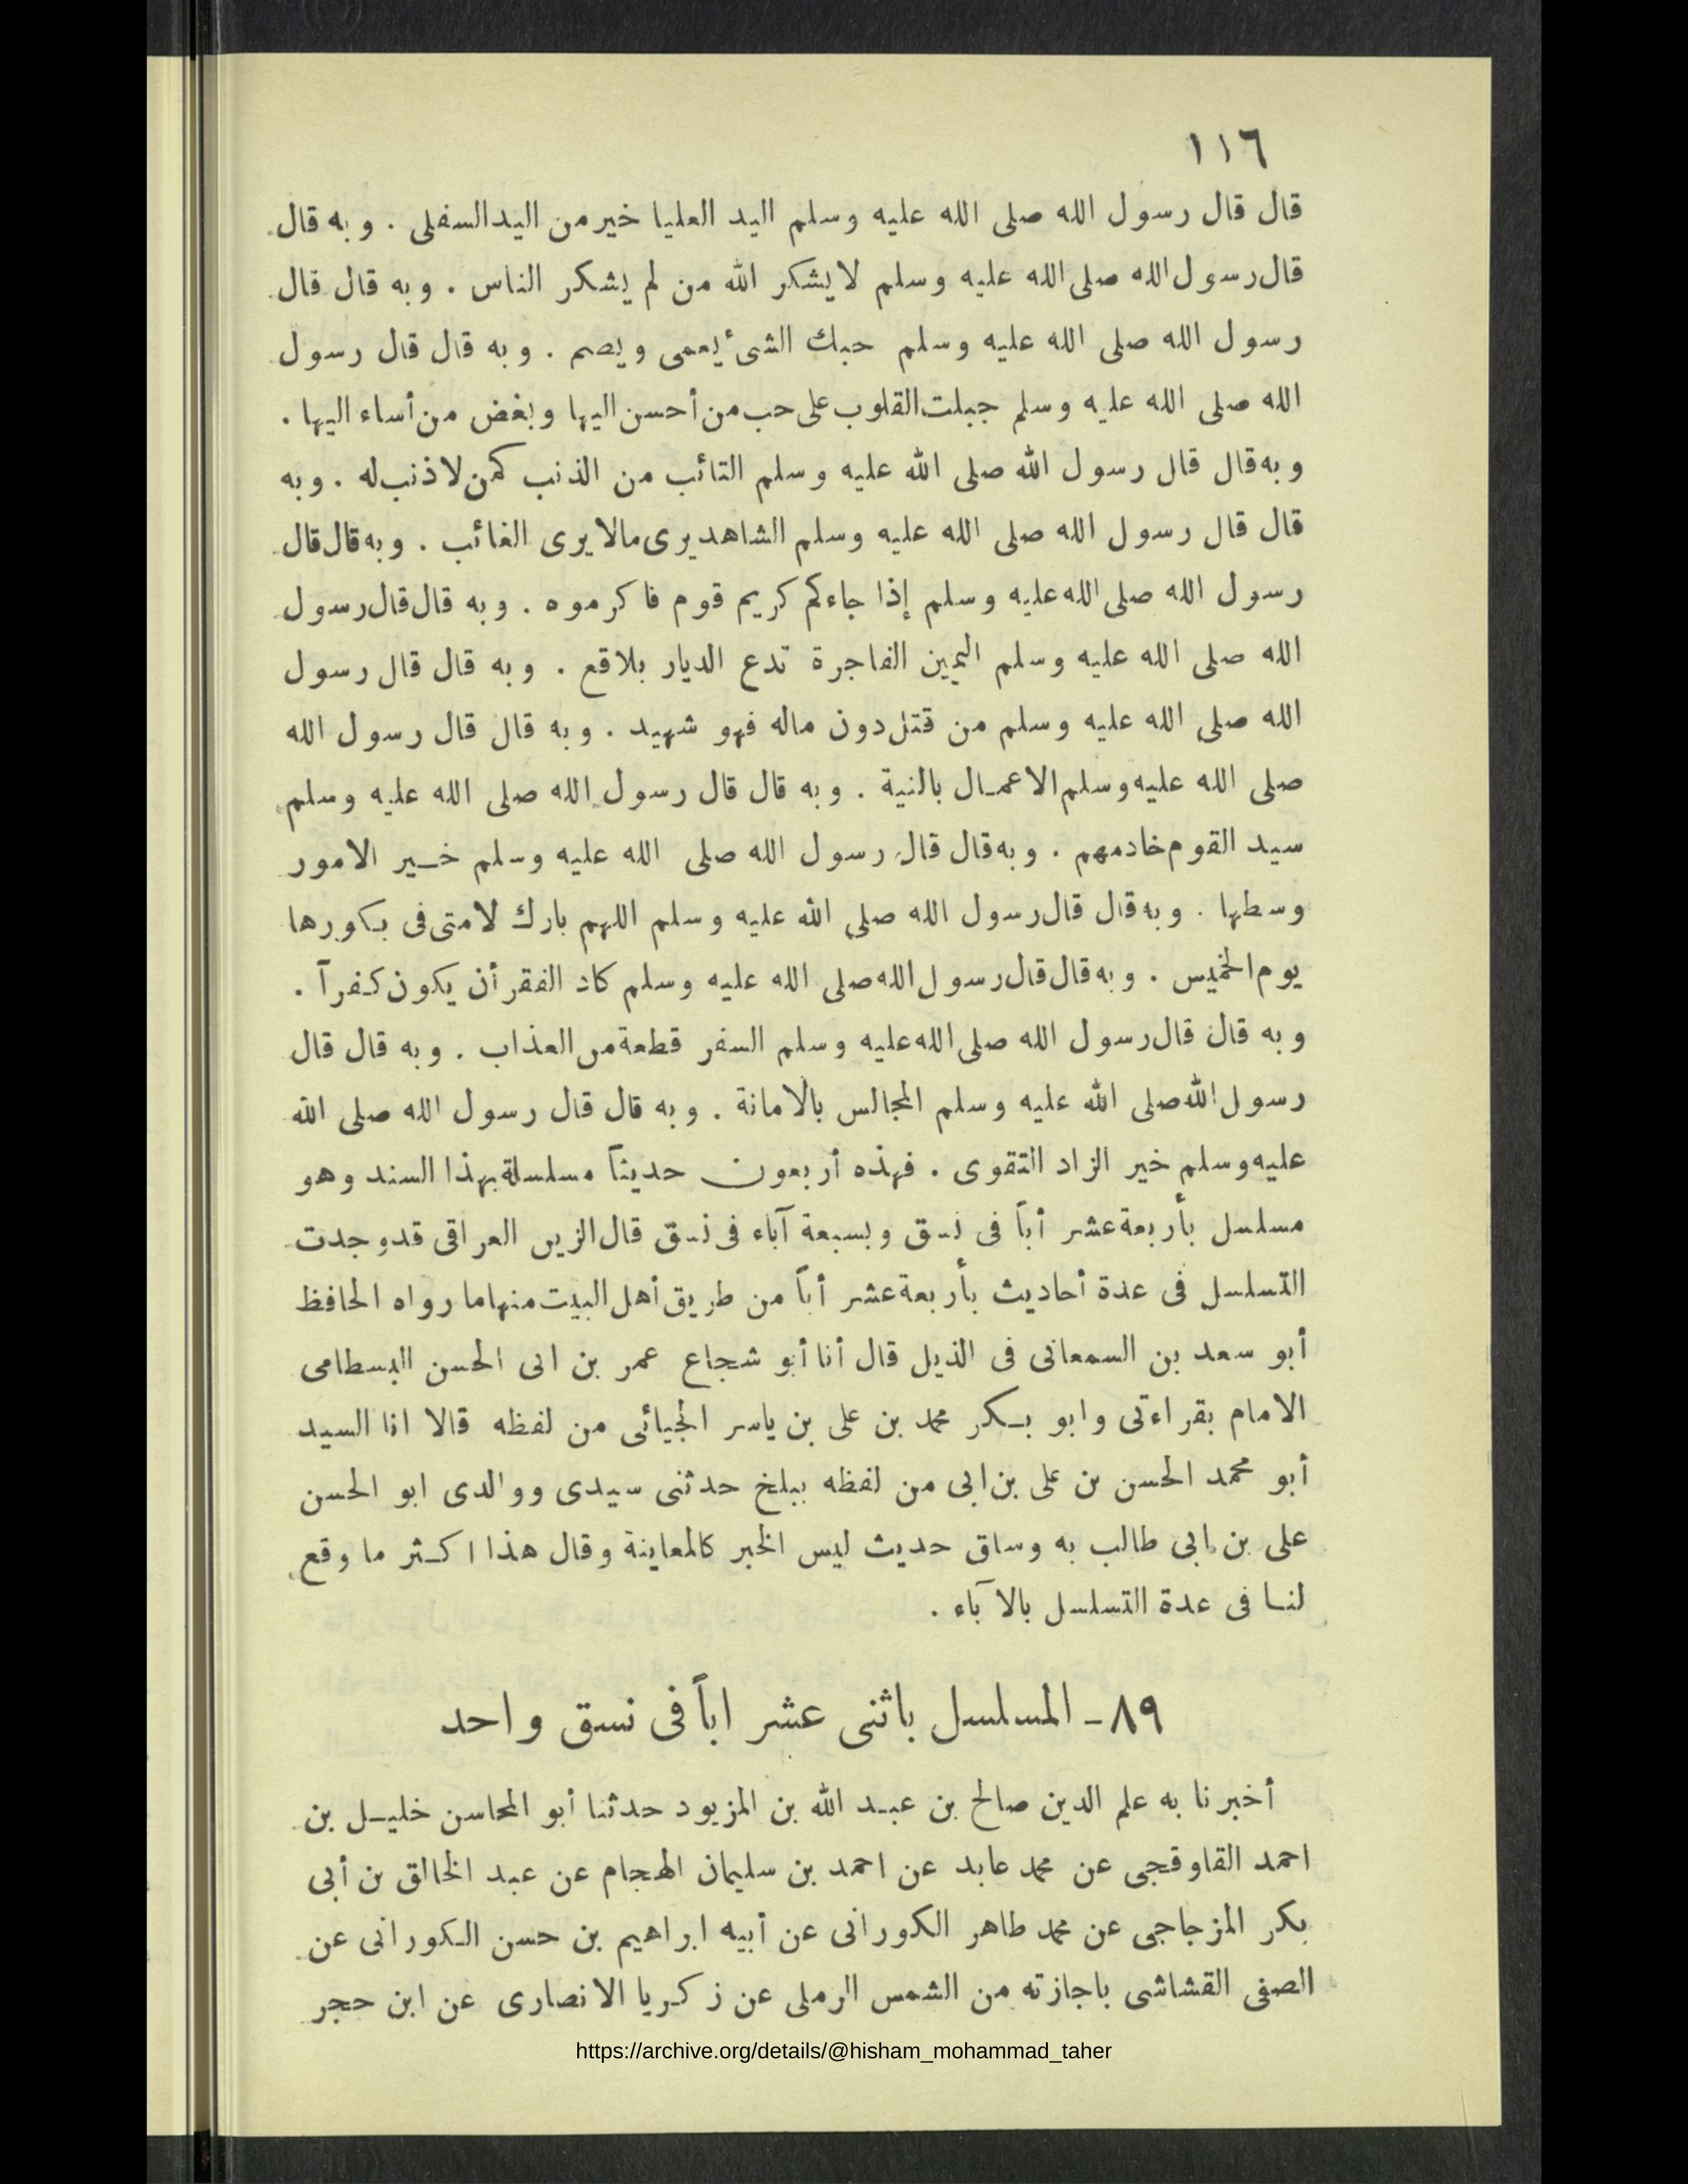 ١١٦
قال قال رسول الله صلى الله عليه وسلم اليد العليا خير من اليد السفلى . و به قال
قال رسول الله صلى الله عليه وسلم لا يشكر الله من لم يشكر الناس . و به قال قال
رسول الله صلى الله عليه وسلم حبك الشىء يعمى و يصم . و به قال قال رسول
الله صلى الله عليه وسلم جبلت القلوب على حب من أحسن اليها و بغض من أساء اليها .
و به قال قال رسول الله صلى الله عليه وسلم التائب من الذنب كمن لا ذنب له . و به
قال قال رسول الله صلى الله عليه وسلم الشاهد يرى مالا يرى الغائب . و به قال قال
رسول الله صلى الله عليه وسلم إذا جاءكم كريم قوم فاكرموه . و به قال قال رسول
الله صلى الله عليه وسلم اليمين الفاجرة تدع الديار بلاقع . و به قال قال رسول
الله صلى الله عليه وسلم من قتل دون ماله فهو شهيد . و به قال قال رسول الله
صلى الله عليه وسلم الاعمال بالنية . و به قال قال رسول الله صلى الله عليه وسلم
سيد القوم خادمهم . و به قال قال رسول الله صلى الله عليه وسلم خير الامور
وسطها . و به قال قال رسول الله صلى الله عليه وسلم اللهم بارك لامتى فى بكورها
يوم الخميس . و به قال قال رسول الله صلى الله عليه وسلم كاد الفقر أن يكون كفراً .
و به قال قال رسول الله صلى الله عليه وسلم السفر قطعة من العذاب . و به قال قال
رسول الله صلى الله عليه وسلم المجالس بالامانة . و به قال قال رسول الله صلى الله
عليه وسلم خير الزاد التقوى . فهذه أربعون حديثاً مسلسلة بهذا السند وهو
مسلسل بأربعة عشر أباً فى نسق و بسبعة آباء فى نسق قال الزين العراقى قد وجدت
التسلسل فى عدة أحاديث بأربعة عشر أباً من طريق أهل البيت منها ما رواه الحافظ
أبو سعد بن السمعانى فى الذيل قال أنا أبو شجاع عمر بن ابى الحسن البسطامى
الامام بقراءتى وابو بكر محمد بن على بن ياسر الجيائى من لفظه قالا انا السيد
أبو محمد الحسن بن على بن ابى من لفظه ببلخ حدثنى سيدى ووالدى ابو الحسن
على بن ابى طالب به وساق حديث ليس الخبر كالمعاينة وقال هذا اكثر ما وقع
لنا فى عدة التسلسل بالآباء .
٨٩ - المسلسل باثنى عشر اباً فى نسق واحد
أخبرنا به علم الدين صالح بن عبد الله بن المزيود حدثنا أبو المحاسن خليل بن
احمد القاوقجى عن محمد عابد عن احمد بن سليمان الهجام عن عبد الخالق بن أبى
بكر المزجاجى عن محمد طاهر الكورانى عن أبيه ابراهيم بن حسن الكورانى عن
الصفى القشاشى باجازته من الشمس الرملى عن زكريا الانصارى عن ابن حجر
https://archive.org/details/@hisham_mohammad_taher